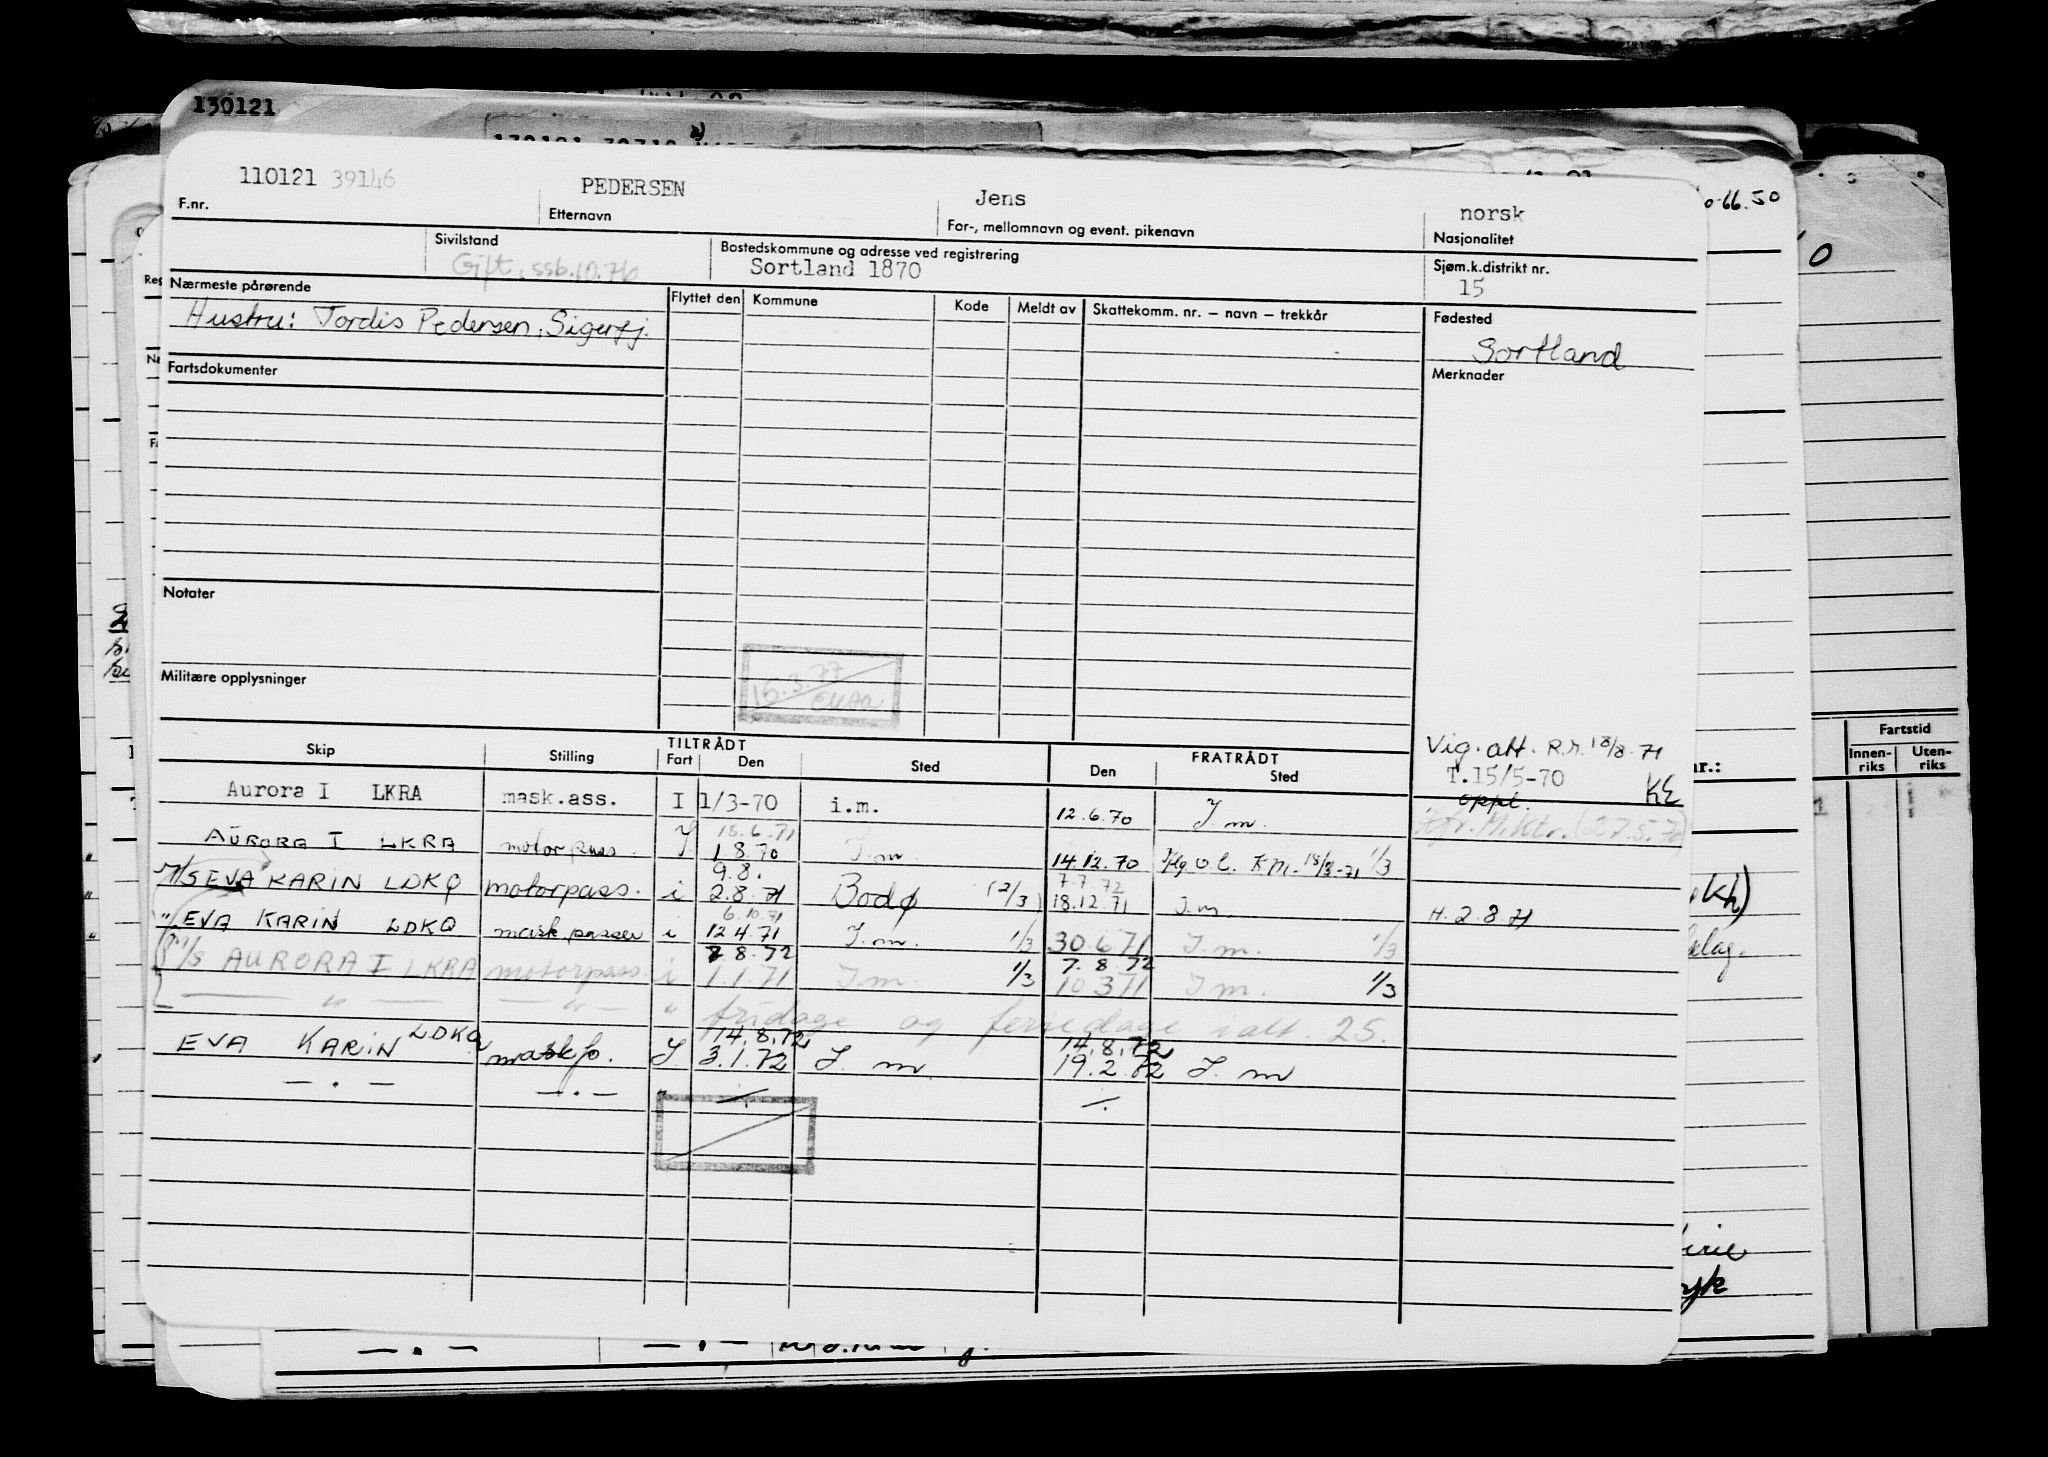 130121
110121 39146 PEDERSEN Jens norsk
F.nr. Etternavn For-, mellomnavn og event. pikenavn Nasjonalitet
Sivilstand Bostedskommune og adresse ved registrering Sjøm.k.distrikt nr.
Gift, ssb.10.76 Sortland 1870 15
Nærmeste pårørende Flyttet den Kommune Kode Meldt av Skattekomm. nr. – navn – trekkår Fødested
Hustru: Tordis Pedersen, Sigerfj. Sortland
Fartsdokumenter Merknader
Notater
15.3.77
Militære opplysninger
Skip Stilling TILTRÅDT FRATRÅDT
Fart Den Sted Den Sted
Vig. att. R.r. 18/8-71
T.15/5-70 KE
oppl.
Aurora I LKRA mask.ass. I 1/3-70 i.m. 12.6.70 I.m.
15.6.71
AURORA I LKRA motorpass. I 1.8.70 I.m. 14.12.70 1/3
9.8. 7.7.72
M/S EVA KARIN LDKQ motorpass. i 2.8.71 Bodø (2/3) 18.12.71 I.m. H. 2.8.71
6.10.71
" EVA KARIN LDKQ mask passer i 12.4.71 I.m. 1/3 30.6.71 I.m. 1/3
8.8.72 7.8.72
M/S AURORA I LKRA motorpass. i 1.1.71 I.m. 1/3 10.3.71 I.m. 1/3
— " — — " — " fridage og feriedage ialt. 25.
14.8.72 14.8.72
EVA KARIN LDKQ maskp. I 3.1.72 I.m 19.2.72 I.m
— . — — . — "
Fartstid
Innenriks Utenriks